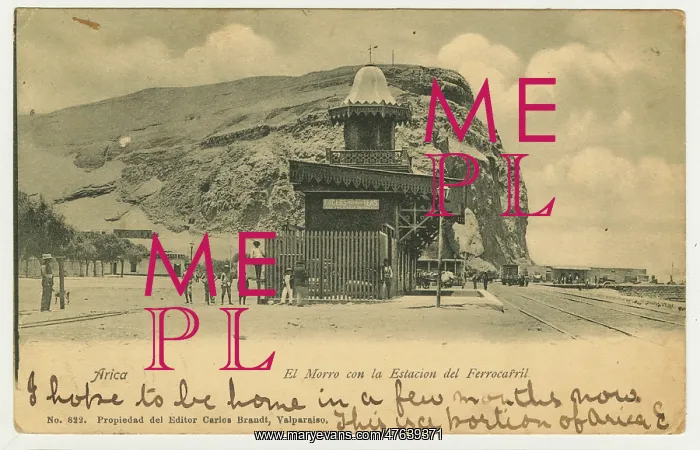 ME
PL
ME
PL
Arica El Morro con la Estacion del Ferrocarril
I hope to be home in a few months now.
No. 822. Propiedad del Editor Carlos Brandt, Valparaiso.
This is a portion of Arica &
www.maryevans.com/47639371